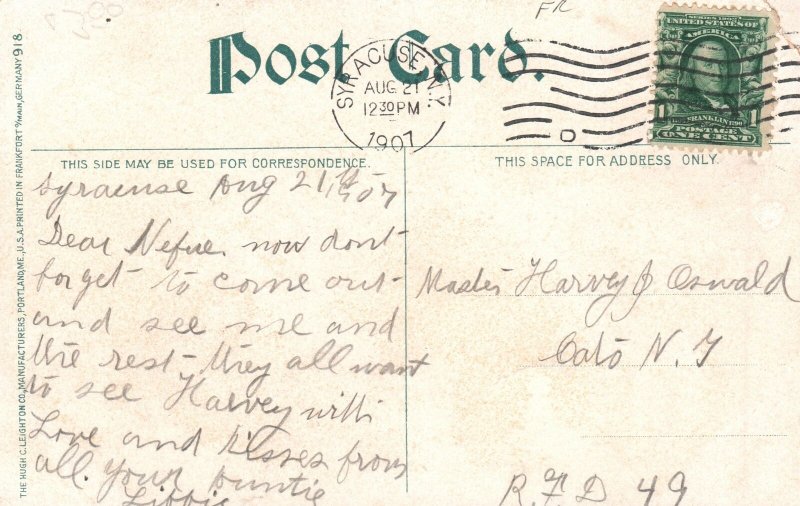 FR
Post Card.
SYRACUSE N.Y.
AUG 21
12 30 PM
1907
SERIES 1902
UNITED STATES OF
AMERICA
1 FRANKLIN 1
POSTAGE
ONE CENT
THIS SIDE MAY BE USED FOR CORRESPONDENCE.
THIS SPACE FOR ADDRESS ONLY.
THE HUGH C. LEIGHTON CO., MANUFACTURERS, PORTLAND, ME., U.S.A. PRINTED IN FRANKFORT O/MAIN, GERMANY 918
Syracuse Aug 21st 07
Dear Nefue now dont
forget to come out
and see me and
the rest they all want
to see Harvey with
Love and kisses from
all your auntie
Libbie
Master Harvey J Oswald
Cato N.Y
R.F.D 49